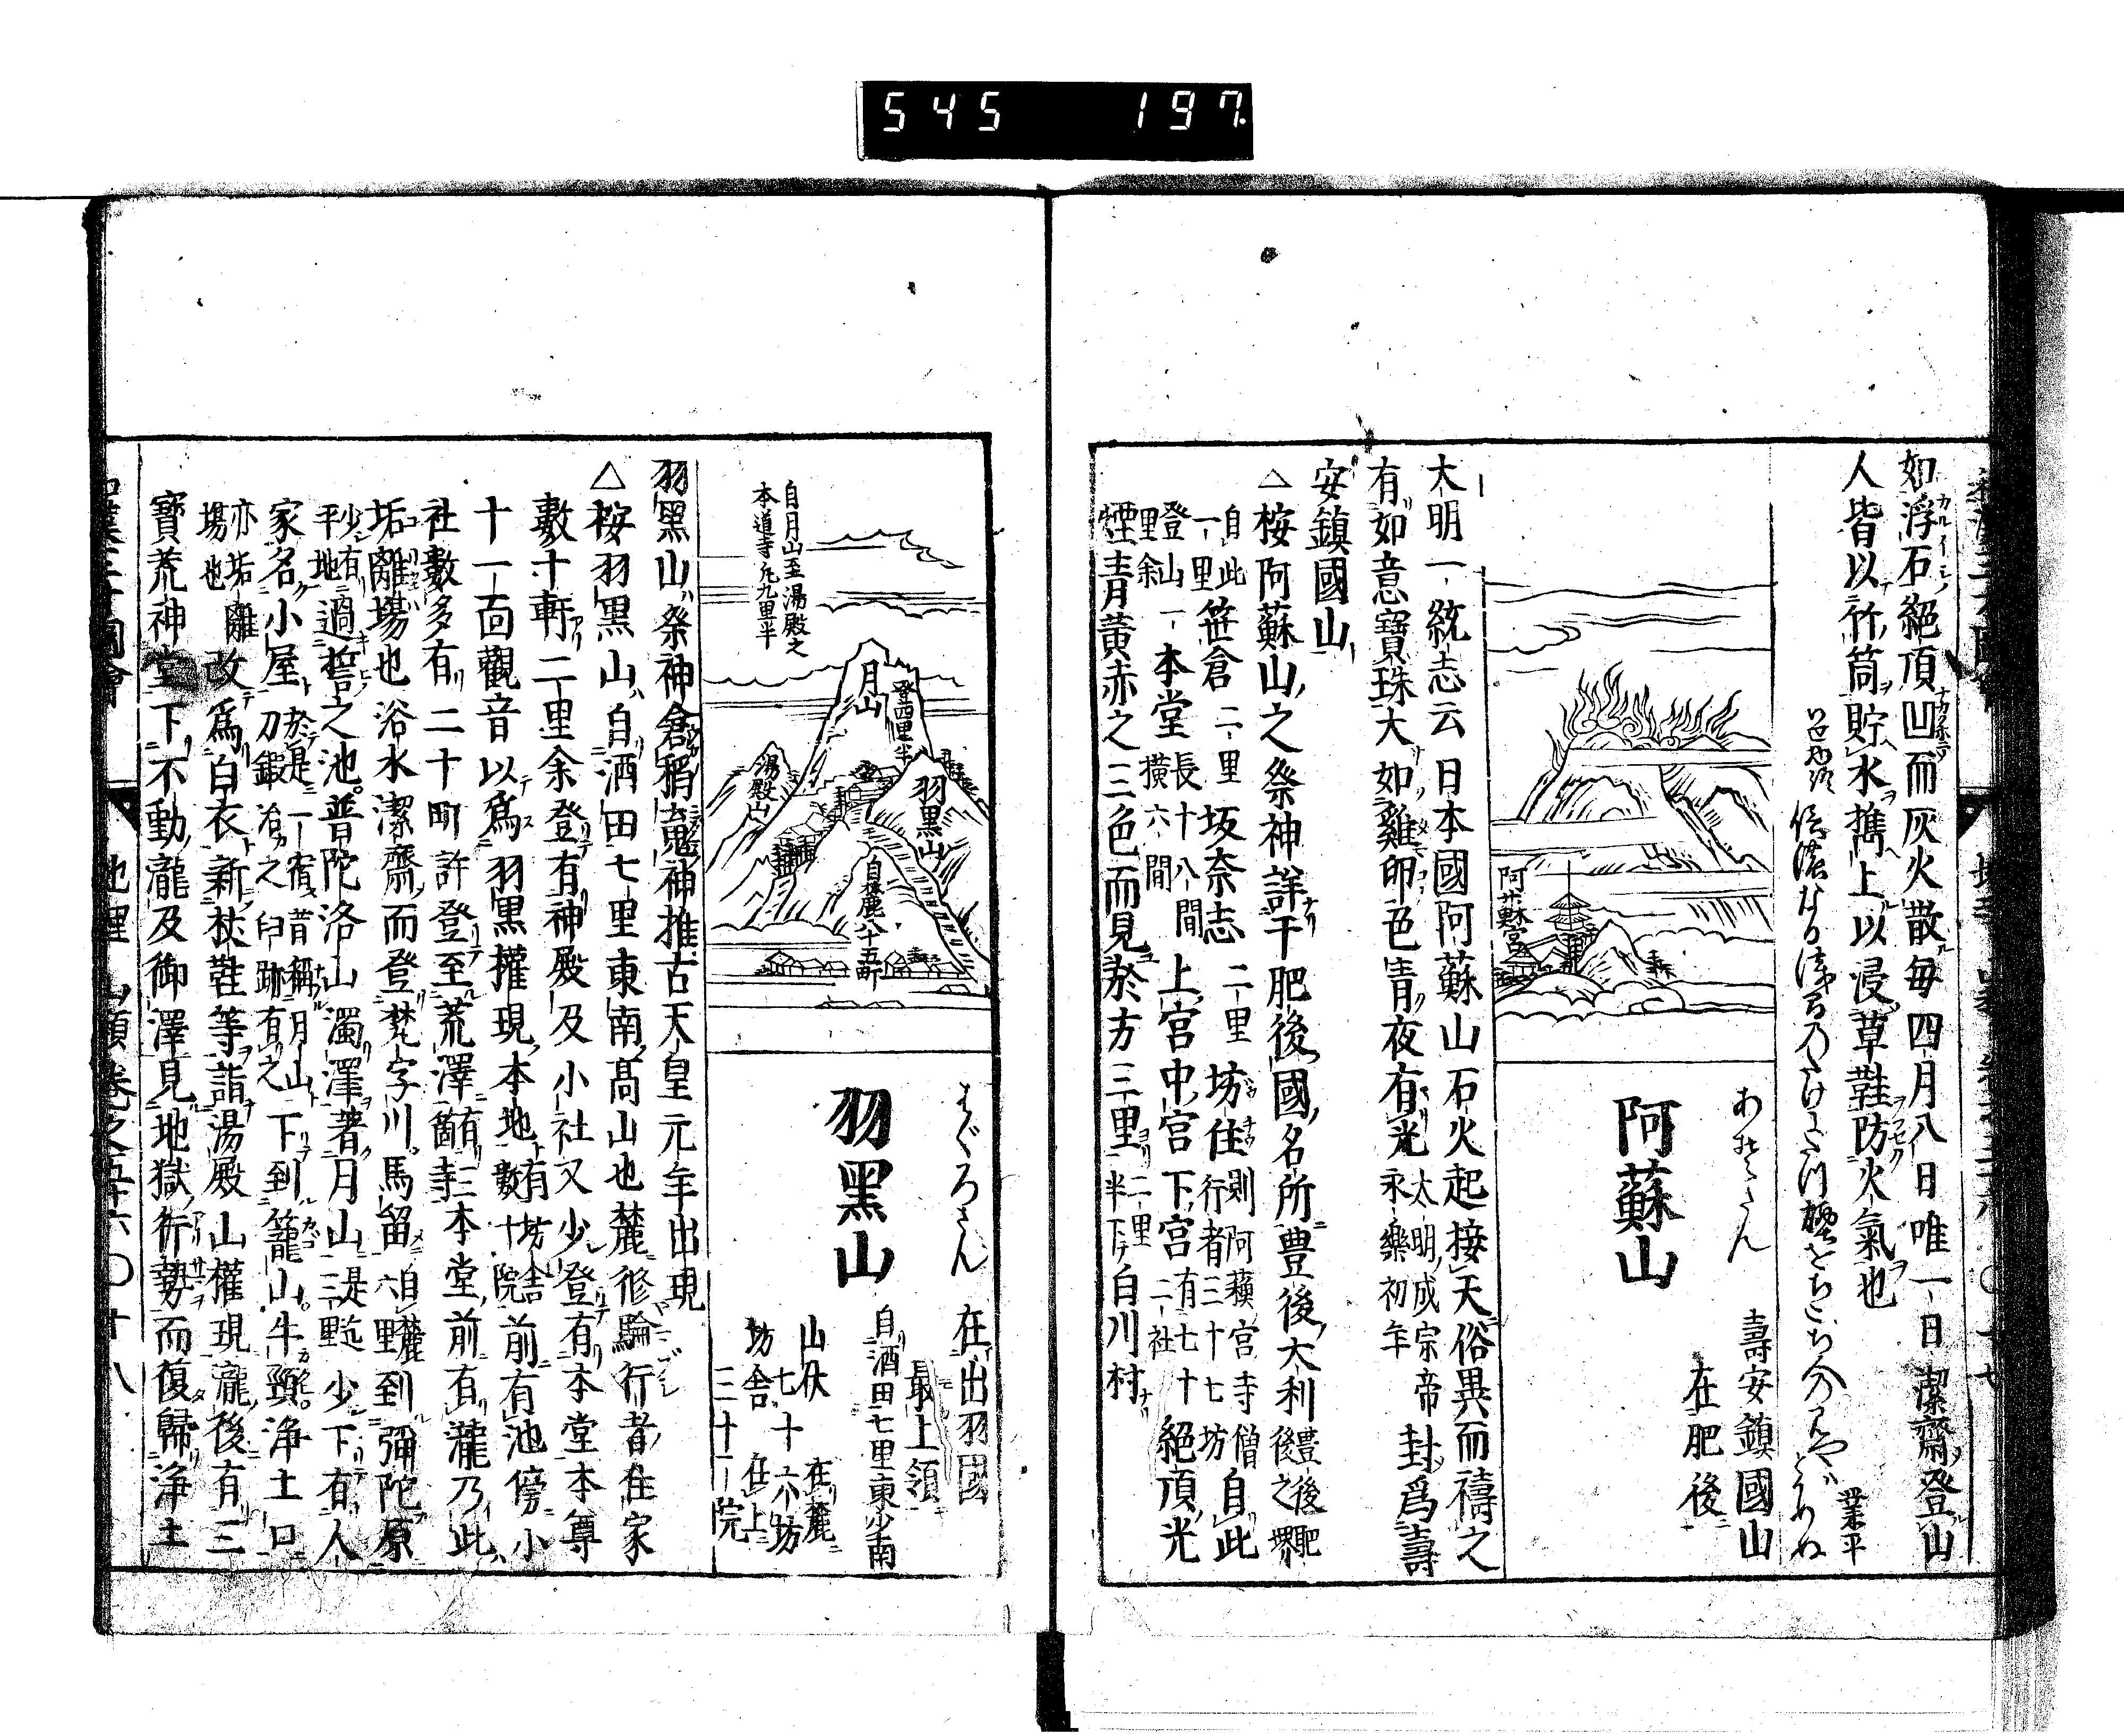 545 197
如浮石絶頂凹而灰火散毎四月八日唯一日潔齋登山
人皆以竹筒貯水携上以浸草鞋防火氣也
業平
信濃なる浅間のたけにたつ烟をちこち人のみやはとかめぬ
あそさん
壽安鎮國山
在肥後
阿蘇山
阿蘇宮
大明一統志云日本國阿蘇山石火起接天俗異而禱之
有如意寶珠大如雞卵色青夜有光太明成宗帝封爲壽
永樂初年
安鎮國山
△桉阿蘇山之祭神詳于肥後國名所豊後大利豊後肥後之堺
自此一里笹倉二里坂奈志二里坊住則阿蘓宮寺僧行者三十七坊自此
登山一里余本堂長十八間横六間上宮中宮下宮有七十二社絶頂光
煙青黄赤之三色而見於方三里二里半下白川村
はぐろさん
在出羽國
最上領
自酒田七里東少南
羽黒山
山伏七十六坊在麓
坊舎三十一院在上
自月山至湯殿之
本道寺凡九里半
月山
登四里半
羽黒山
湯殿山
自麓八十五町
羽黒山祭神倉稻魂神推古天皇元年出現
△桉羽黒山自酒田七里東南高山也麓修驗行者住家
數十軒二里余登有神殿及小社又少登有本堂本尊
十一面觀音以爲羽黒權現本地有坊舎數十院前有池傍小
社數多有二十町許登至荒澤有三箇寺本堂前有瀧乃此
垢離場也浴水潔齋而登梵字川馬留自麓六里到彌陀原
少有平地過誓之池普陀洛山濁澤著月山是迄三里少下有人
家名小屋於是一宿昔稱月山刀鍛冶之臼跡有之下到籠山牛頸浄土口
亦垢離場也改爲白衣新杖鞋等詣湯殿山權現瀧後有三
寶荒神堂下不動瀧及御澤見地獄行勢而復歸浄土
地理 山類卷之五十六〇十八